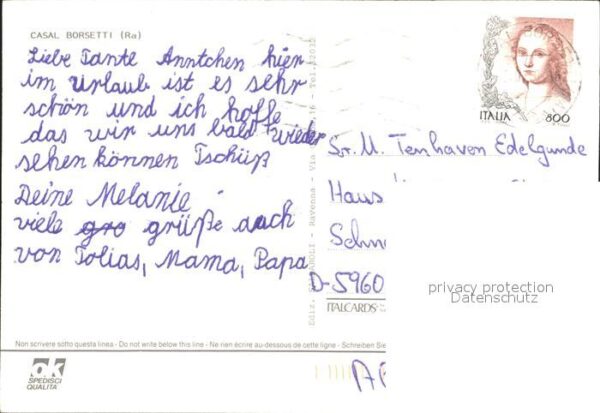 CASAL BORSETTI (Ra)
Liebe Tante Anntchen hier
im Urlaub ist es sehr
schön und ich hoffe
das wir uns bald wieder
sehen können Tschüß
Deine Melanie
viele gro grüße auch
von Tobias, Mama, Papa
ITALIA 800
Sr. M. Tenhaven Edelgunde
Haus
D-5960
privacy protection
Datenschutz
ITALCARDS
Ravenna - Via
Non scrivere sotto questa linea - Do not write below this line - Ne rien écrire au-dessous de cette ligne - Schreiben Sie
ok
SPEDISCI
QUALITÀ